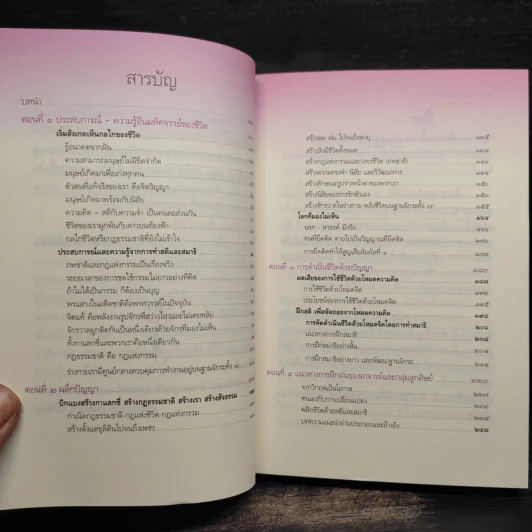 สารบัญ
บทนำ
ตอนที่ ๑ ประสบการณ์ - ความรู้อันมหัศจรรย์ของชีวิต
เริ่มสังเกตเห็นกลไกของชีวิต
รู้อนาคตจากฝัน
ความสามารถมนุษย์ไม่มีขีดจำกัด
มนุษย์เกิดมาเพื่อเก่งทุกคน
ตัวตนที่แท้จริงของเรา คือจิตวิญญาณ
มนุษย์เกิดมาพร้อมกับนิสัย
ความคิด - สติกับความจำ เป็นคนละส่วนกัน
ชีวิตของเราผูกพันกับดาวบนท้องฟ้า
กลไกชีวิตหรือกฎธรรมชาติที่ยังไม่เข้าใจ
ประสบการณ์และความรู้จากการทำสติและสมาธิ
ภพชาติและกฎแห่งกรรมเป็นเรื่องจริง
ระยะเวลาของการชดใช้กรรมไม่ยาวอย่างที่คิด
ถ้าไม่ได้เป็นกรรม ก็ต้องเป็นบุญ
พรแสวงในอดีตชาติคือพรสวรรค์ในปัจจุบัน
จิตแท้ คือพลังงานรูปจักรที่สว่างไสวและไม่เคยหลับ
จักรวาลผูกติดกันเป็นหนึ่งเดียวด้วยจักรที่มองไม่เห็น
ทั้งกาแลกซี่และพวกเราคือหนึ่งเดียวกัน
กฎธรรมชาติ คือ กฎแห่งกรรม
ร่างกายเรามีศูนย์กลางควบคุมการทำงานอยู่บนฐานจักระทั้ง ๗
ตอนที่ ๒ ผลึกปัญญา
บิกแบงสร้างกาแลกซี่ สร้างกฎธรรมชาติ สร้างเรา สร้างสัจธรรม
กำเนิดกฎธรรมชาติ-กฎแห่งชีวิต-กฎแห่งกรรม
สร้างตั้งแต่ธุลีดินไปจนถึงเพชร
สร้างลม ฝน ไปจนถึงพายุ ๑๓๕
สร้างสิ่งมีชีวิตทั้งหมด ๑๓๘
สร้างกฎแห่งกรรมและวงจรชีวิต (ภพชาติ) ๑๔๑
สร้างความทรงจำ นิสัย และวิวัฒนาการ
สร้างลักษณะรูปร่างหน้าตาของพวกเรา ๑๕๐
สร้างนิสัยของการรักตัวเอง
สร้างจักรวาลในร่างกาย-พลังชีวิตบนฐานจักระทั้ง ๗
โลกที่มองไม่เห็น
นรก - สวรรค์ มีจริง
คนที่ยึดติด ตายไปเป็นวิญญาณที่ยึดติด
การยึดติดทำให้สูญเสียสัมผัสที่ ๖
ตอนที่ ๓ การดำเนินชีวิตด้วยปัญญา
ผลเสียของการใช้ชีวิตด้วยโหมดความคิด
การใช้ชีวิตด้วยโหมดจิต
ประโยชน์ของการใช้ชีวิตด้วยโหมดจิต
ฝึกสติ เพื่อถอยออกจากโหมดความคิด
การหัดดำเนินชีวิตด้วยโหมดจิตโดยการทำสมาธิ
แนวทางการฝึกสมาธิ
การฝึกสมาธิอย่างสั้น
การฝึกสมาธิอย่างยาว และพัฒนาฐานจักระ
ตอนที่ ๔ แนวทางการฝึกฝนของอาจารย์และกลุ่มลูกศิษย์
จากวิกฤตเป็นโอกาส
ตนเองกับการเปลี่ยนแปลง
พลิกชีวิตด้วยสติและสมาธิ
บทความแนะนำอ่านประกอบและอ้างอิง ๒๔๗